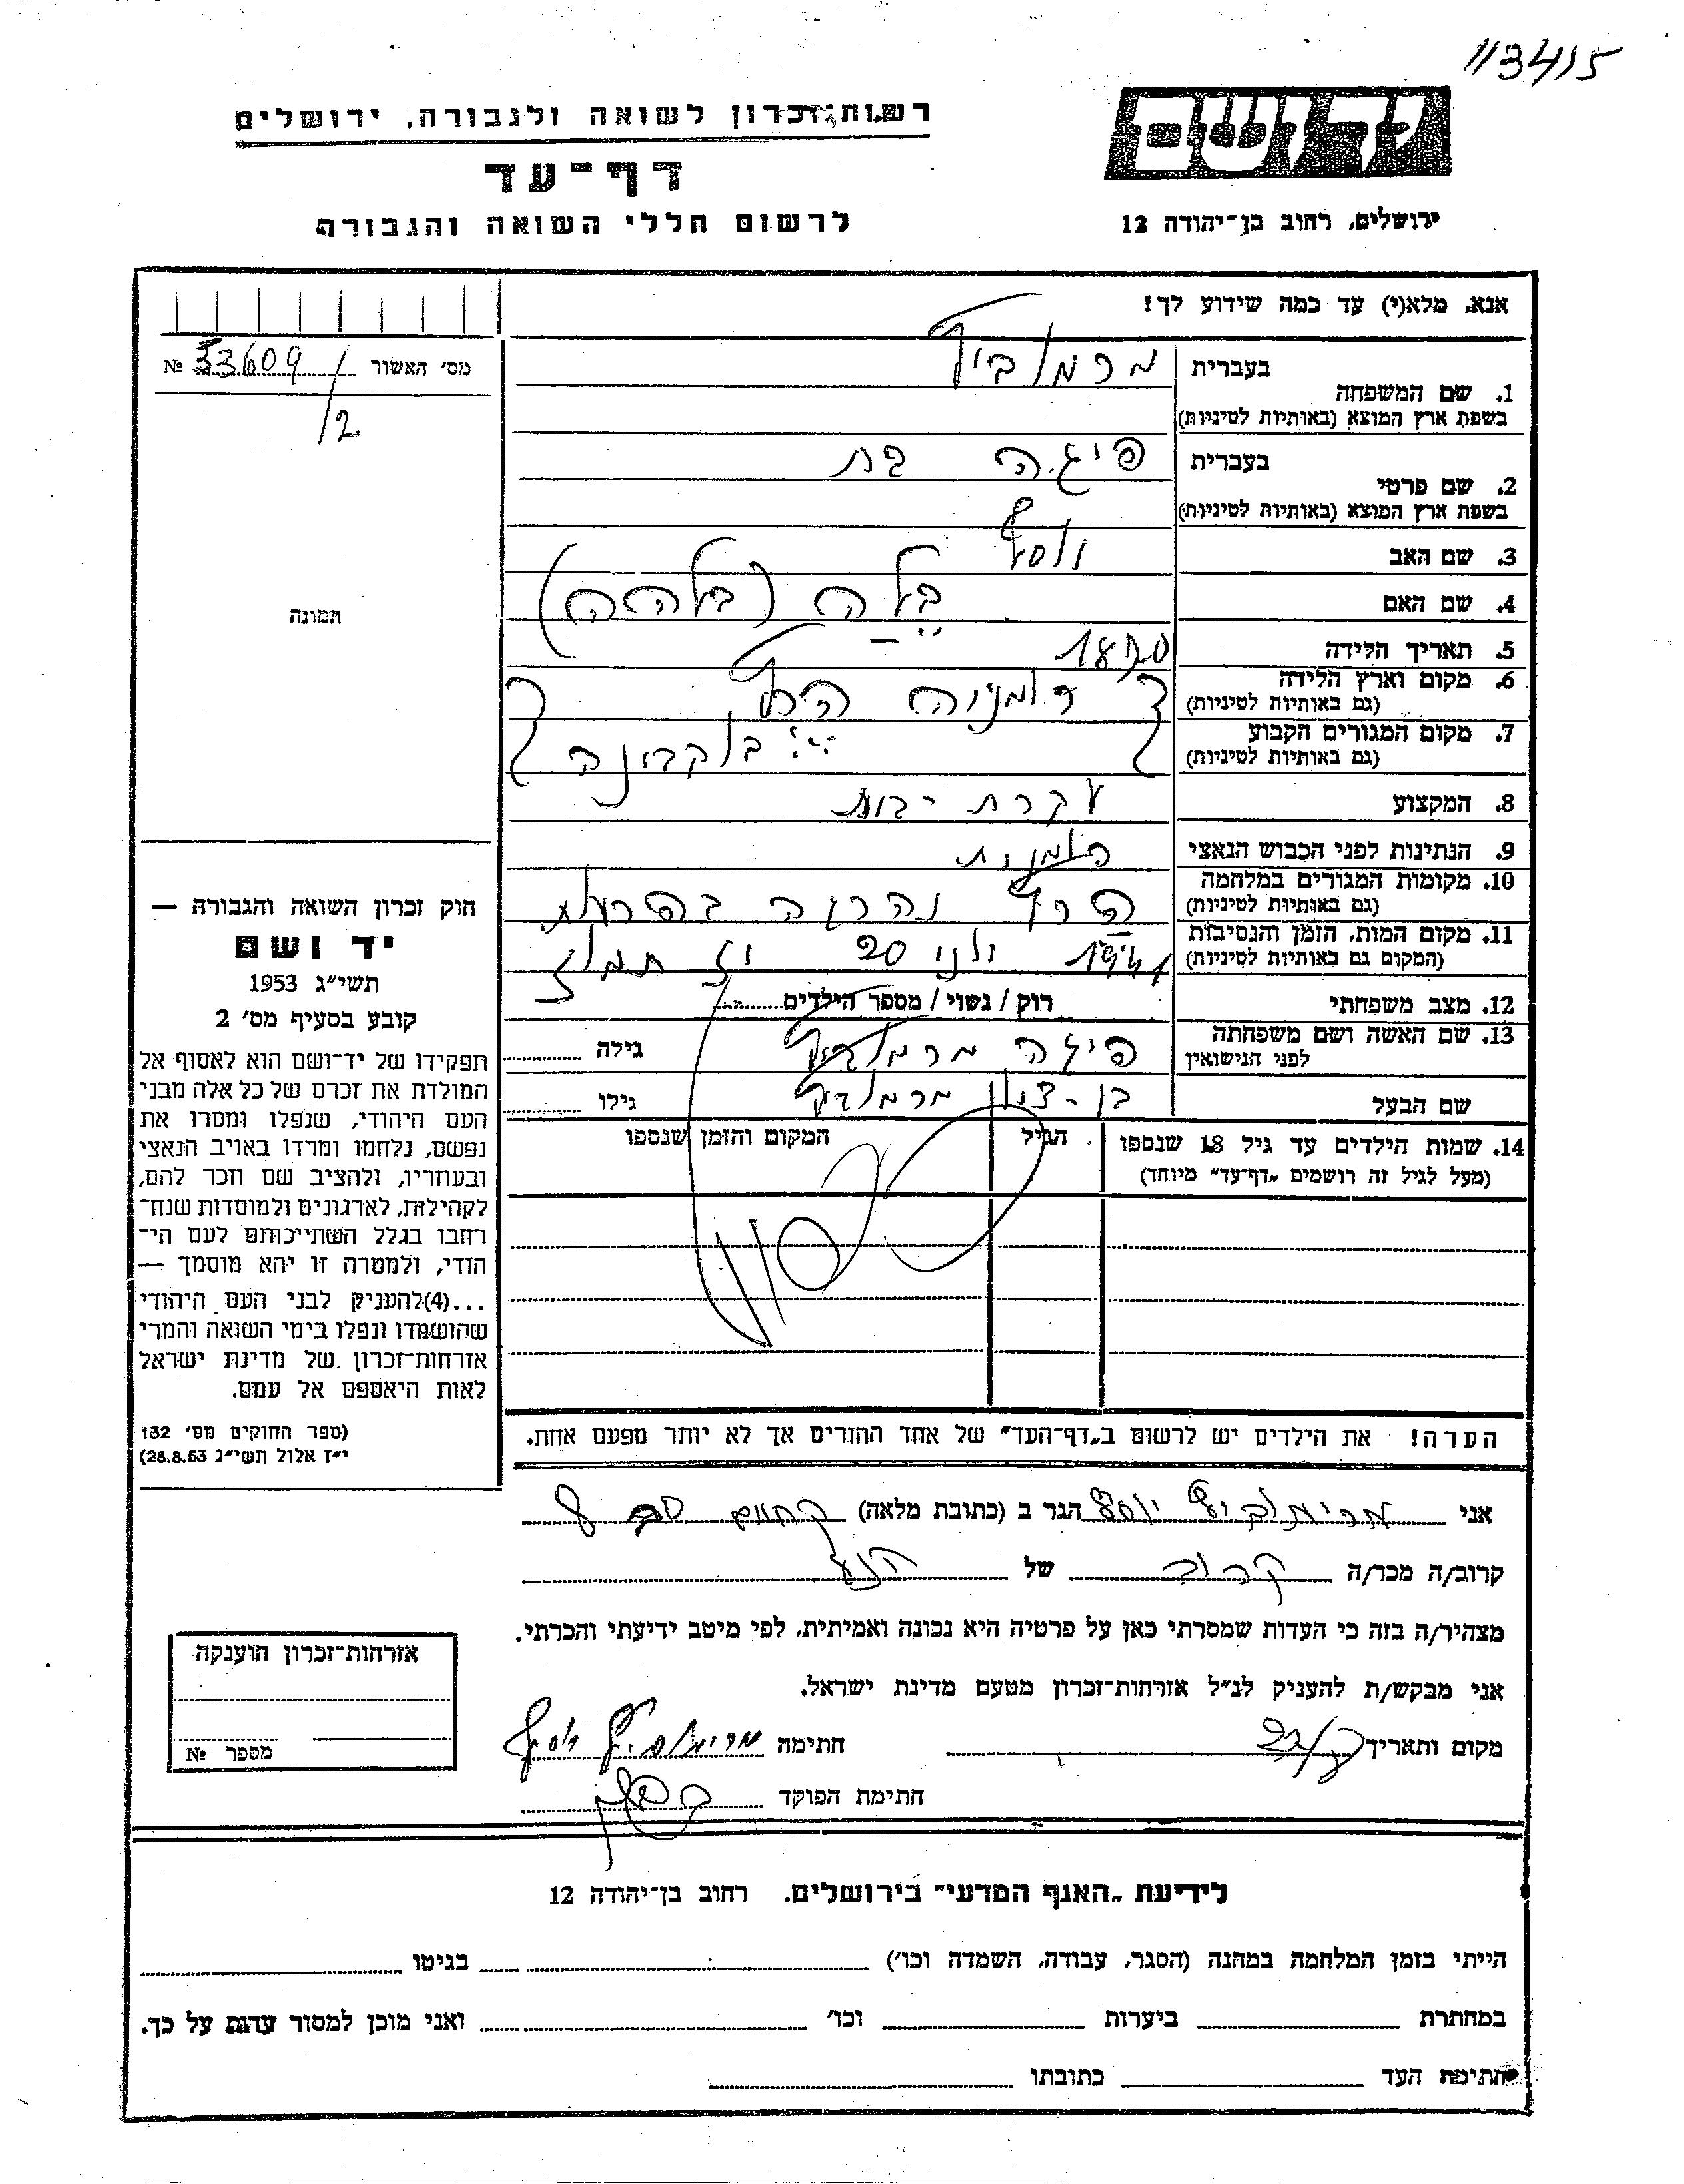 113415
ידושם
רשות זכרון לשואה ולגבורה, ירושלים
דף-עד
ירושלים, רחוב בן-יהודה 12
לרשום חללי השואה והגבורה
אנא, מלא(י) עד כמה שידוע לך!
מס׳ האשור 53609 №
/2
תמונה
1. שם המשפחה
בעברית
בשפת ארץ המוצא (באותיות לטיניות)
2. שם פרטי
בעברית פיגה בת
בשפת ארץ המוצא (באותיות לטיניות)
3. שם האב
4. שם האם בלה (בלהה)
5. תאריך הלידה
6. מקום וארץ הלידה
(גם באותיות לטיניות)
רומניה
7. מקום המגורים הקבוע
(גם באותיות לטיניות)
בוקבינה
8. המקצוע עקרת בית
9. הנתינות לפני הכבוש הנאצי
10. מקומות המגורים במלחמה
(גם באותיות לטיניות)
נהרגה
11. מקום המות, הזמן והנסיבות
(המקום גם באותיות לטיניות)
1941 יולי 20 יז תמוז
12. מצב משפחתי רוק / נשוי / מספר הילדים
13. שם האשה ושם משפחתה
לפני הנישואין
פיגה גילה
שם הבעל בן-ציון גילו
14. שמות הילדים עד גיל 18 שנספו הגיל המקום והזמן שנספו
(מעל לגיל זה רושמים „דף-עד״ מיוחד)
הערה! את הילדים יש לרשום ב„דף-העד״ של אחד ההורים אך לא יותר מפעם אחת.
חוק זכרון השואה והגבורה —
יד ושם
תשי״ג 1953
קובע בסעיף מס׳ 2
תפקידו של יד-ושם הוא לאסוף אל
המולדת את זכרם של כל אלה מבני
העם היהודי, שנפלו ומסרו את
נפשם, נלחמו ומרדו באויב הנאצי
ובעוזריו, ולהציב שם וזכר להם,
לקהילות, לארגונים ולמוסדות שנח־
רחבו בגלל השתייכותם לעם הי־
הודי, ולמטרה זו יהא מוסמך —
...(4)להעניק לבני העם היהודי
שהושמדו ונפלו בימי השואה והמרי
אזרחות-זכרון של מדינת ישראל
לאות היאספם אל עמם.
(ספר החוקים מס׳ 132
י״ז אלול תשי״ג 28.8.53)
אני יוסף הגר ב (כתובת מלאה)
קרוב/ה מכר/ה קרוב של
מצהיר/ה בזה כי העדות שמסרתי כאן על פרטיה היא נכונה ואמיתית, לפי מיטב ידיעתי והכרתי.
אני מבקש/ת להעניק לנ״ל אזרחות-זכרון מטעם מדינת ישראל.
מקום ותאריך חתימה
חתימת הפוקד
אזרחות-זכרון הוענקה
מספר №
לידיעת „האגף המדעי״ בירושלים, רחוב בן-יהודה 12
הייתי בזמן המלחמה במחנה (הסגר, עבודה, השמדה וכו׳) בגיטו
במחתרת ביערות וכו׳ ואני מוכן למסור עדות על כך.
חתימת העד כתובתו